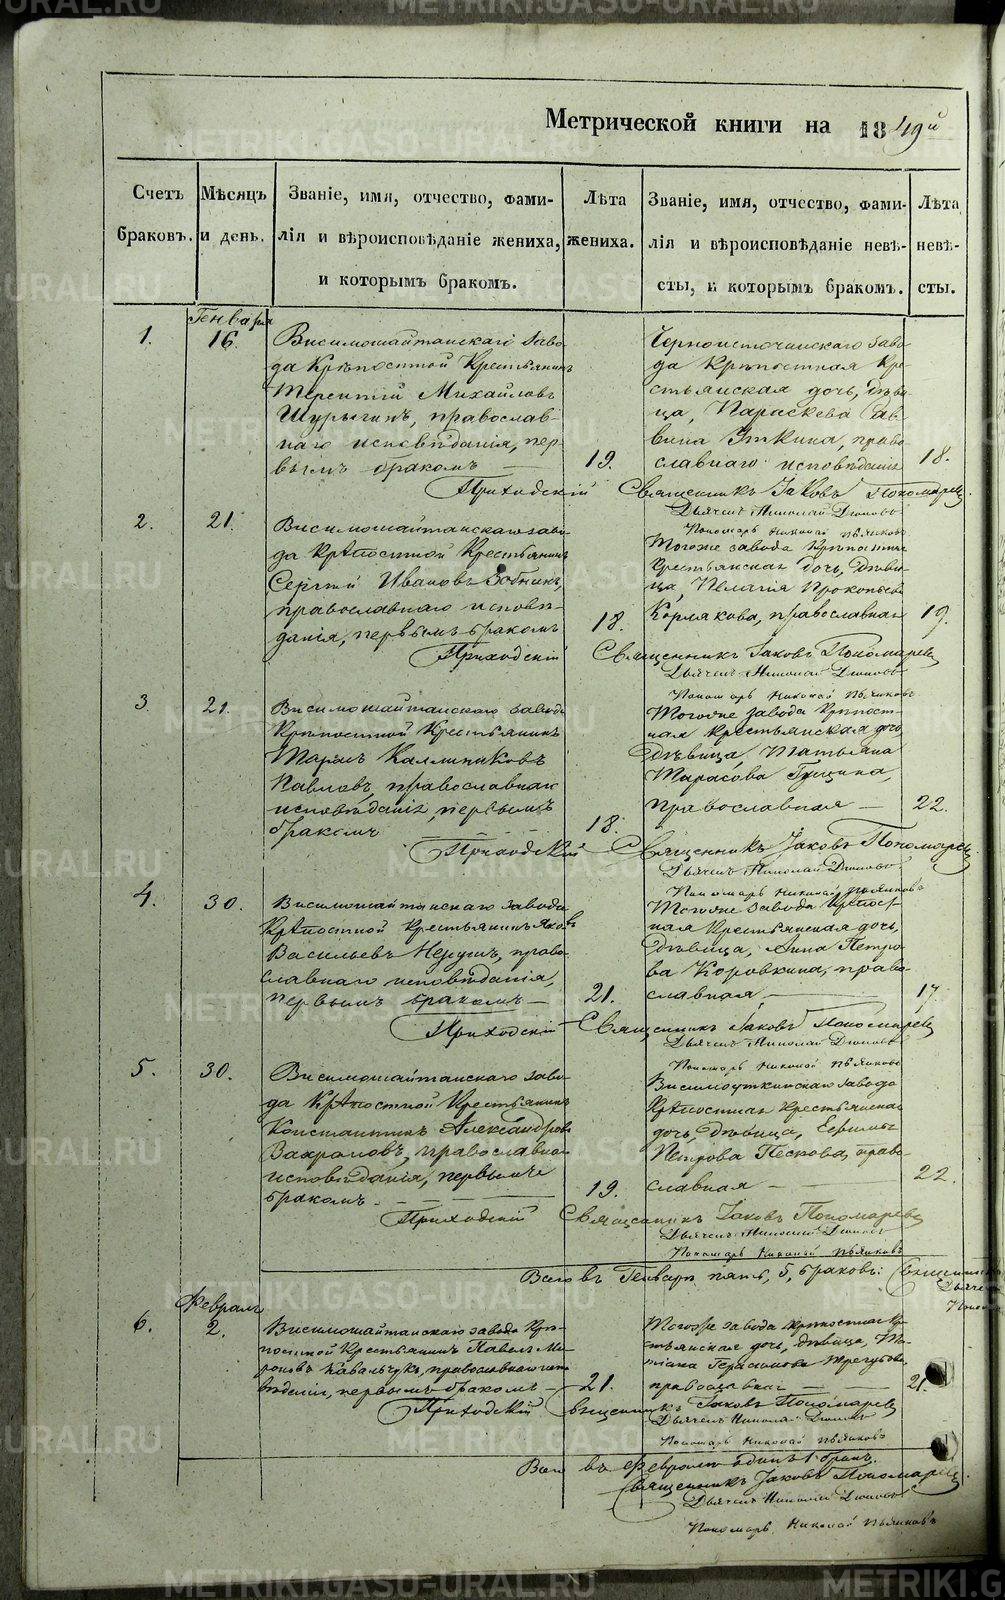 Метрической книги на 1849й
Счетъ браковъ.
Мѣсяцъ и день.
Званіе, имя, отчество, фами-
лія и вѣроисповѣданіе жениха,
и которымъ бракомъ.
Лѣта жениха.
Званіе, имя, отчество, фами-
лія и вѣроисповѣданіе невѣ-
сты, и которымъ бракомъ.
Лѣта невѣ-
сты.
Генваря
1.
16.
Висимошайтанскаго заво-
да Крѣпостной Крестьянинъ
Терентій Михайловъ
Шурыгинъ, православ-
наго исповѣданія, пер-
вымъ бракомъ
19.
Черноисточинскаго заво-
да Крѣпостная Кре-
стьянская дочь, дѣви-
ца, Параскева
Уткина, право-
славнаго исповѣданія
18.
Приходскій Священникъ Іаковъ Пономаревъ
Дьячекъ Николай
Пономарь Николай
2.
21.
Висимошайтанскаго заво-
да Крѣпостной Крестьянинъ
Сергій Ивановъ Зобнинъ,
православнаго исповѣ-
данія, первымъ бракомъ
18.
Тогоже завода Крѣпостная
Крестьянская дочь, дѣви-
ца, Пелагія Прокопьева
Корлякова, православная
19.
Приходскій Священникъ Іаковъ Пономаревъ
Дьячекъ Николай
Пономарь Николай
3
21.
Висимошайтанскаго завода
Крѣпостной Крестьянинъ
Тарасъ Каллиниковъ
Павловъ, православнаго
исповѣданія, первымъ
бракомъ
18.
Тогоже завода Крѣпост-
ная Крестьянская дочь,
дѣвица, Татьяна
Тарасова Гущина,
православная
22.
Приходскій Священникъ Іаковъ Пономаревъ
Дьячекъ Николай
Пономарь Николай
4.
30.
Висимошайтанскаго завода
Крѣпостной Крестьянинъ Яковъ
Васильевъ право-
славнаго исповѣданія,
первымъ бракомъ
21.
Тогоже завода Крѣпост-
ная Крестьянская дочь,
дѣвица, Анна Петро-
ва Коровкина, право-
славная
17.
Приходскій Священникъ Іаковъ Пономаревъ
Дьячекъ Николай
Пономарь Николай
5.
30.
Висимошайтанскаго заво-
да Крѣпостной Крестьянинъ
Константинъ Александровъ
православнаго
исповѣданія, первымъ
бракомъ
19.
Висимоуткинскаго завода
Крѣпостная Крестьянская
дочь, дѣвица,
Петрова Пескова, право-
славная
22.
Приходскій Священникъ Іаковъ Пономаревъ
Дьячекъ Николай
Пономарь Николай
Всего въ Генварѣ пять, 5, браковъ.
Февраль
6.
2.
Висимошайтанскаго завода Крѣ-
постной Крестьянинъ Павелъ Ми-
роновъ Кавальчукъ, православнаго испо-
вѣданія, первымъ бракомъ
21.
Тогоже завода крѣпостная Кре-
стьянская дочь, дѣвица, Та-
тіана Герасимова Трегубова,
православная
21.
Приходскій Священникъ Іаковъ Пономаревъ
Дьячекъ Николай
Пономарь Николай
Всего въ Февралѣ одинъ 1 бракъ.
Священникъ Іаковъ Пономаревъ
Дьячекъ Николай
Пономарь Николай
METRIKI.GASO-URAL.RU